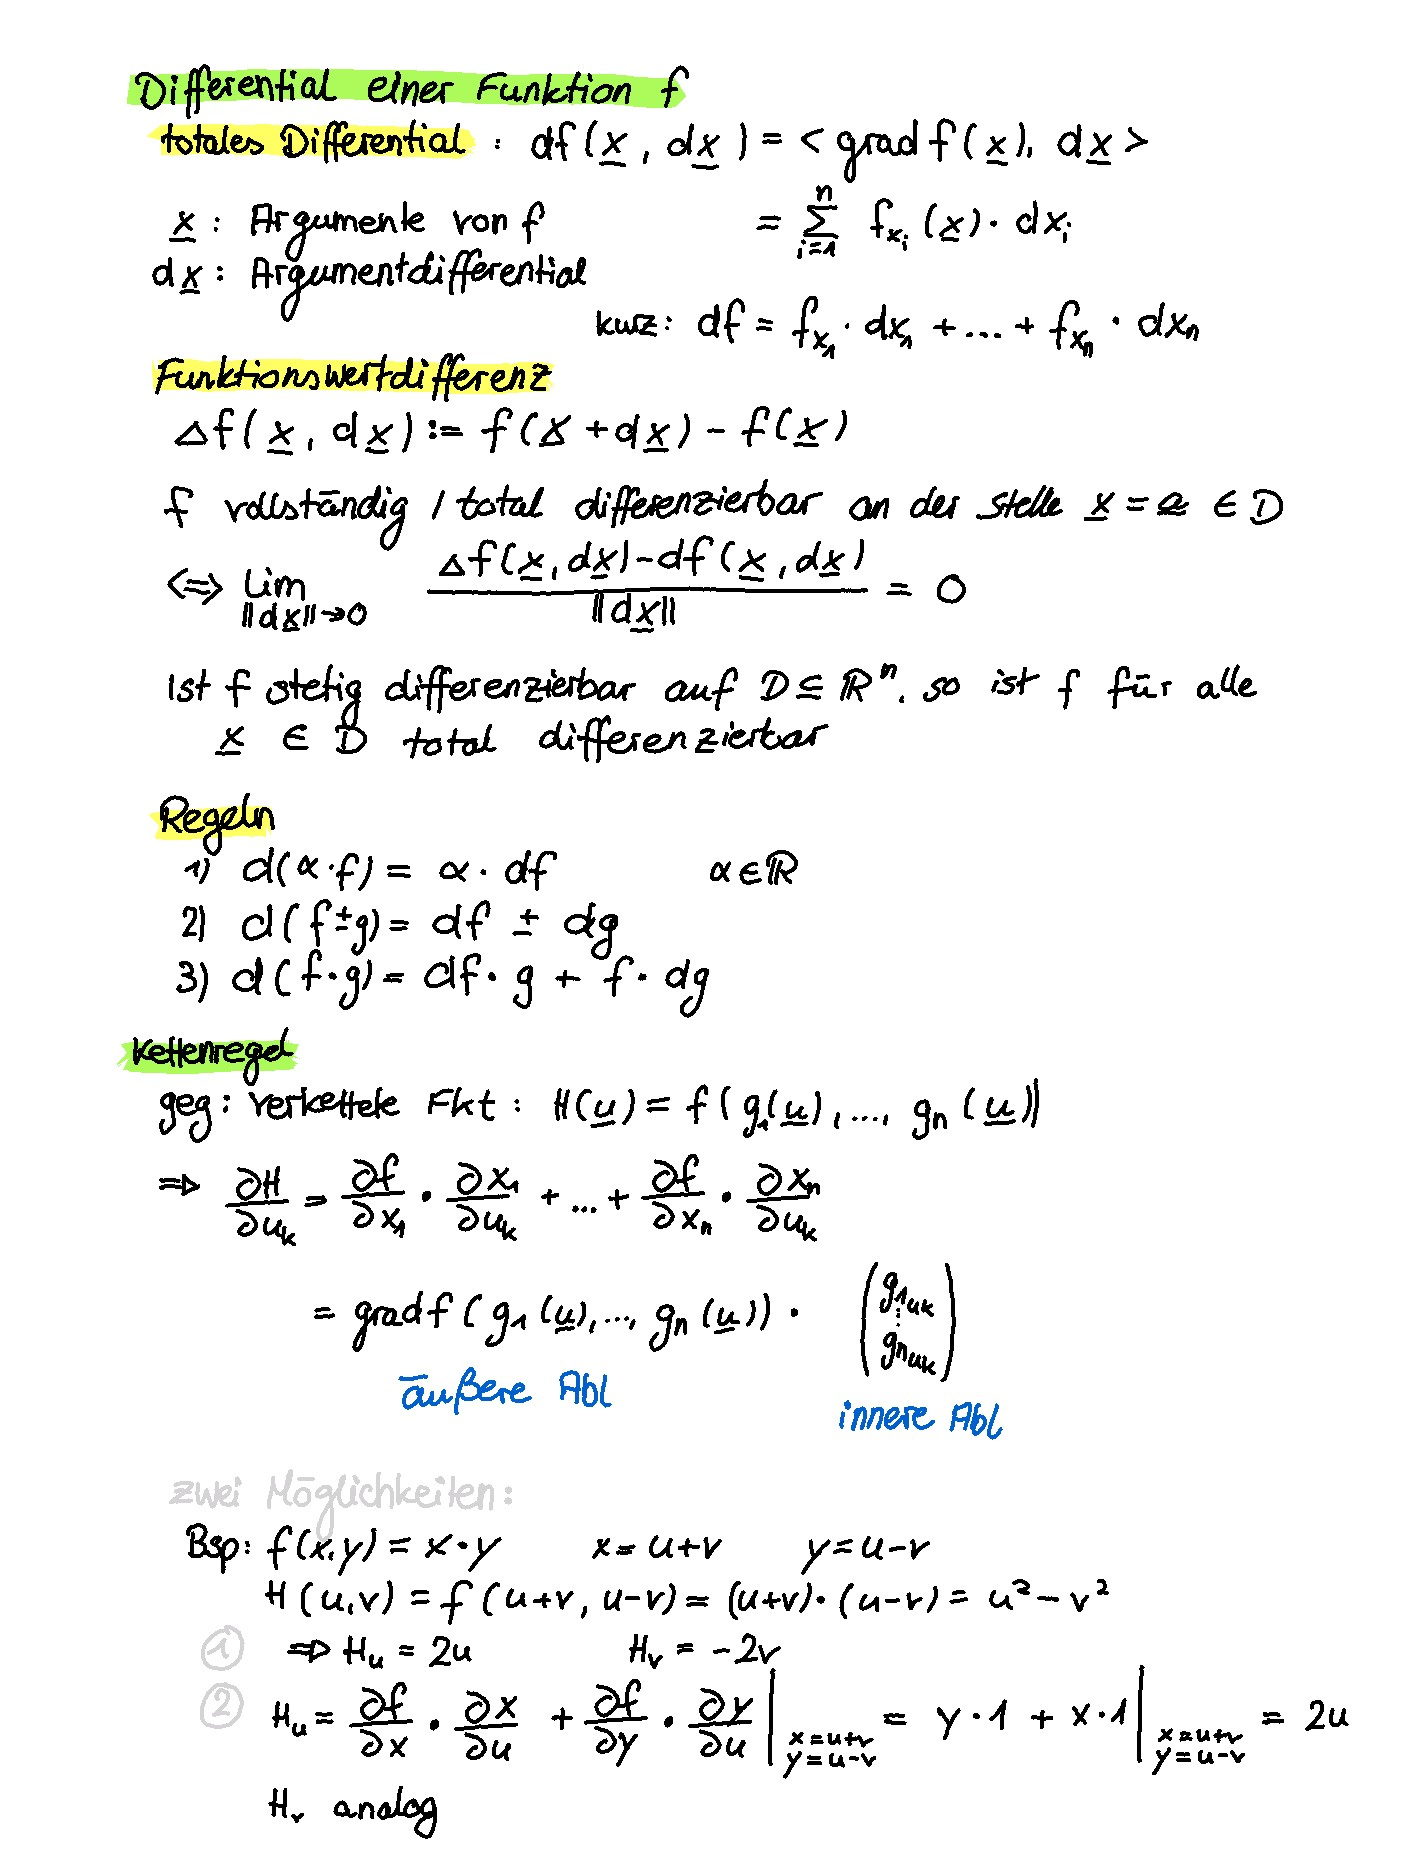 Differential einer Funktion f
totales Differential : df(x, dx) = < grad f(x), dx >
x : Argumente von f = ∑_{i=1}^{n} f_{x_i}(x) · dx_i
dx : Argumentdifferential
kurz: df = f_{x_1} · dx_1 + ... + f_{x_n} · dx_n
Funktionswertdifferenz
Δf(x, dx) := f(x + dx) - f(x)
f vollständig / total differenzierbar an der Stelle x = a ∈ D
<=> lim_{||dx||→0} (Δf(x, dx) - df(x, dx)) / ||dx|| = 0
Ist f stetig differenzierbar auf D ⊆ ℝ^n, so ist f für alle
x ∈ D total differenzierbar
Regeln
1) d(α·f) = α · df α ∈ ℝ
2) d(f±g) = df ± dg
3) d(f·g) = df · g + f · dg
Kettenregel
geg: verkettete Fkt : H(u) = f(g_1(u), ..., g_n(u))
⇒ ∂H/∂u_k = ∂f/∂x_1 · ∂x_1/∂u_k + ... + ∂f/∂x_n · ∂x_n/∂u_k
= grad f(g_1(u), ..., g_n(u)) · (g_{1uk} ⋮ g_{nuk})
äußere Abl innere Abl
zwei Möglichkeiten:
Bsp: f(x,y) = x·y x = u+v y = u-v
H(u,v) = f(u+v, u-v) = (u+v)·(u-v) = u² - v²
① ⇒ H_u = 2u H_v = -2v
② H_u = ∂f/∂x · ∂x/∂u + ∂f/∂y · ∂y/∂u |_{x=u+v y=u-v} = y·1 + x·1 |_{x=u+v y=u-v} = 2u
H_v analog